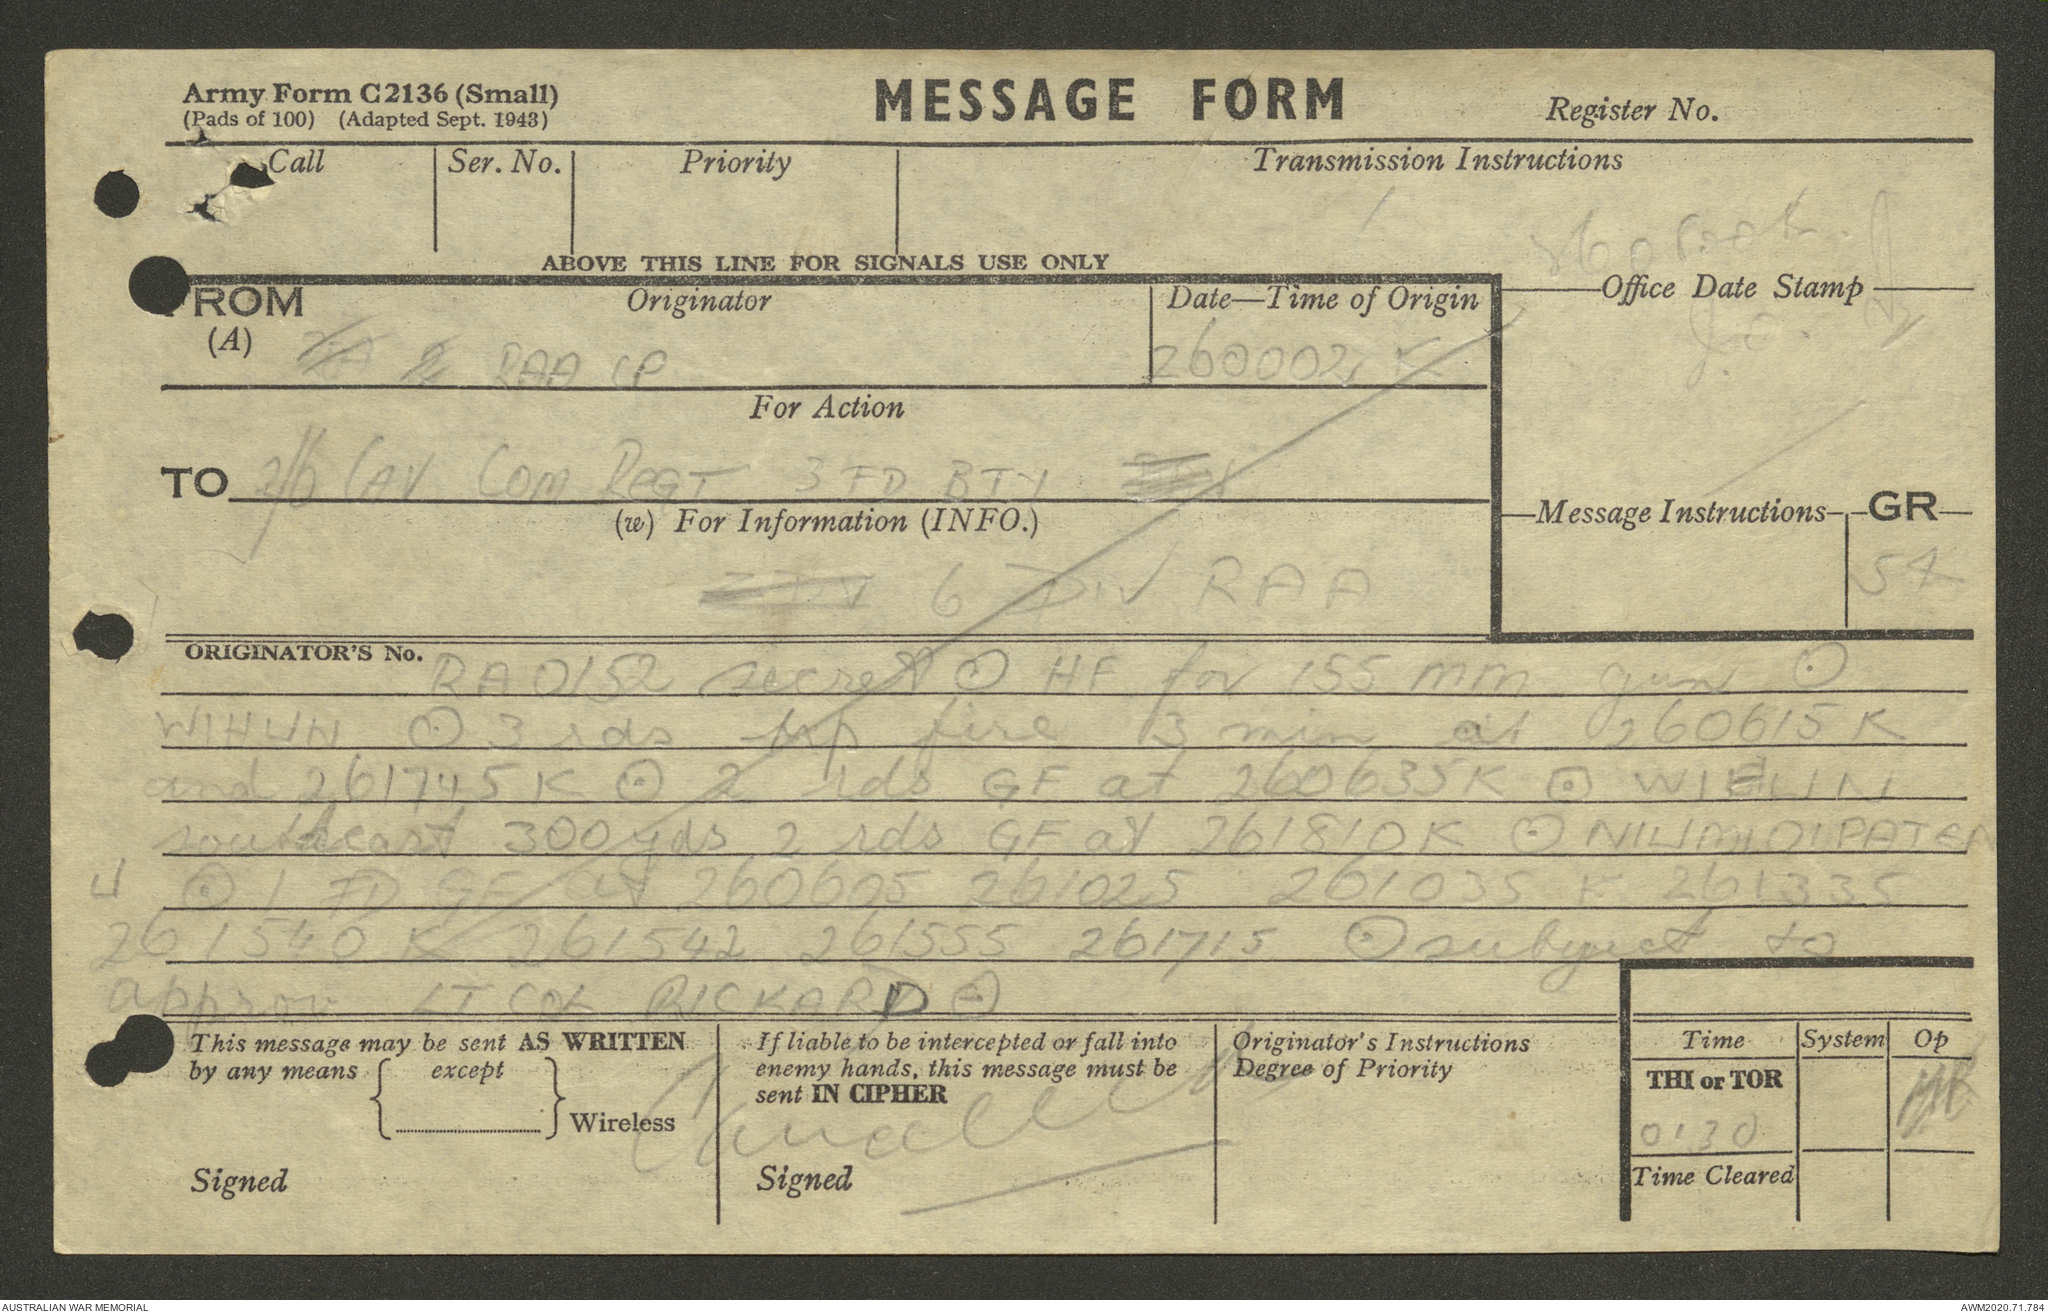 Army Form C2136 (Small)
(Pads of 100) (Adapted Sept. 1943)
MESSAGE FORM
Register No.
Call
Ser. No.
Priority
Transmission Instructions
ABOVE THIS LINE FOR SIGNALS USE ONLY
FROM
(A)
Originator
Date—Time of Origin
Office Date Stamp
RAA CP
260002 K
For Action
TO 2/6 CAV COM REGT 3 FD BTY
(w) For Information (INFO.)
Message Instructions
GR
54
6 DIV RAA
ORIGINATOR'S No.
RA 0152 secret ⊙ HF for 155 MM gun ⊙
WIHUN ⊙ 3 rds fire 3 min at 260615 K
and 261745 K ⊙ 2 rds GF at 260635K ⊙ WIHUN
southeast 300 yds 2 rds GF at 261810K ⊙
⊙ 1 RD GF at 260605 261025 261035 K 261335
261540 K 261542 261555 261715 ⊙ subject to
approv LT COL RICKARD ⊙
This message may be sent AS WRITTEN
by any means except
Wireless
Signed
If liable to be intercepted or fall into
enemy hands, this message must be
sent IN CIPHER
Signed
Originator's Instructions
Degree of Priority
Time
System
Op
THI or TOR
0130
Time Cleared
AUSTRALIAN WAR MEMORIAL
AWM2020.71.784